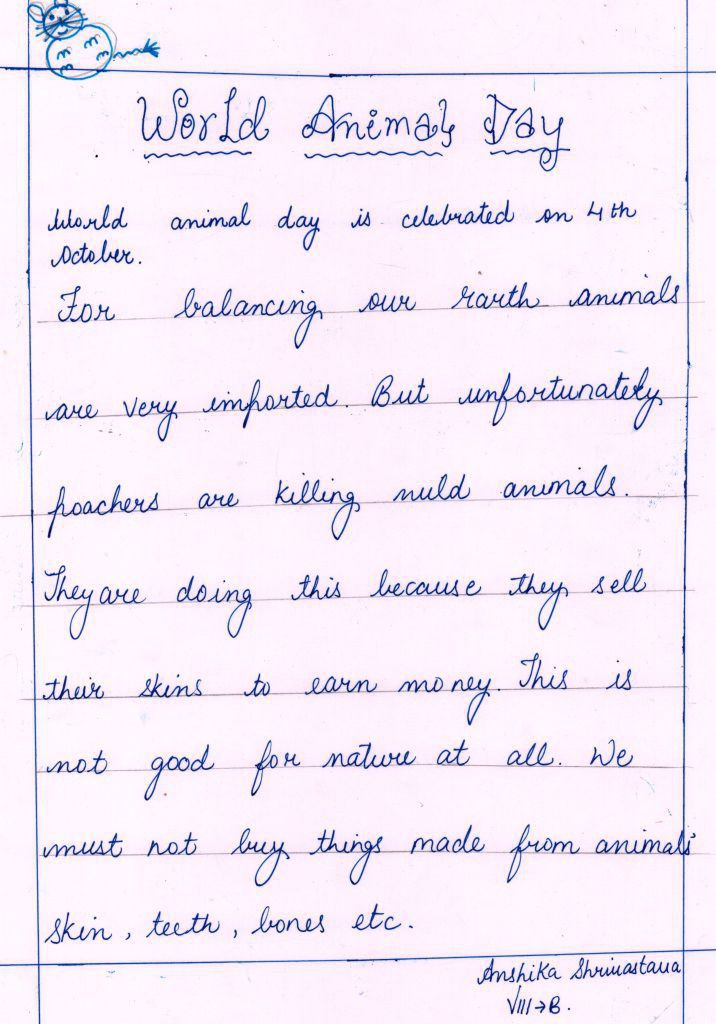 World Animal Day
World animal day is celebrated on 4th
October.
For balancing our earth animals
are very imported. But unfortunately
poachers are killing wild animals.
They are doing this because they sell
their skins to earn money. This is
not good for nature at all. We
must not buy things made from animals'
skin, teeth, bones etc.
Anshika Shrivastava
VIII→B.